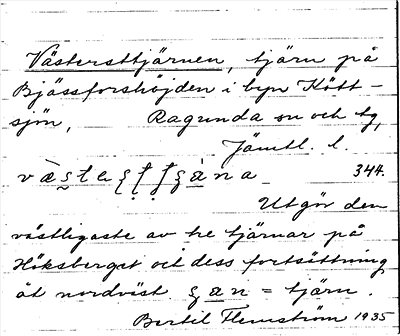 Västersttjärnen, tjärn på
Bjässforshöjden i byn Kött-
sjön, Ragunda sn och tg,
Jämtl. l.
344.
Utgör den
västligaste av tre tjärnar på
Höksberget och dess fortsättning
åt nordväst = tjärn.
Bertil Flemström 1935